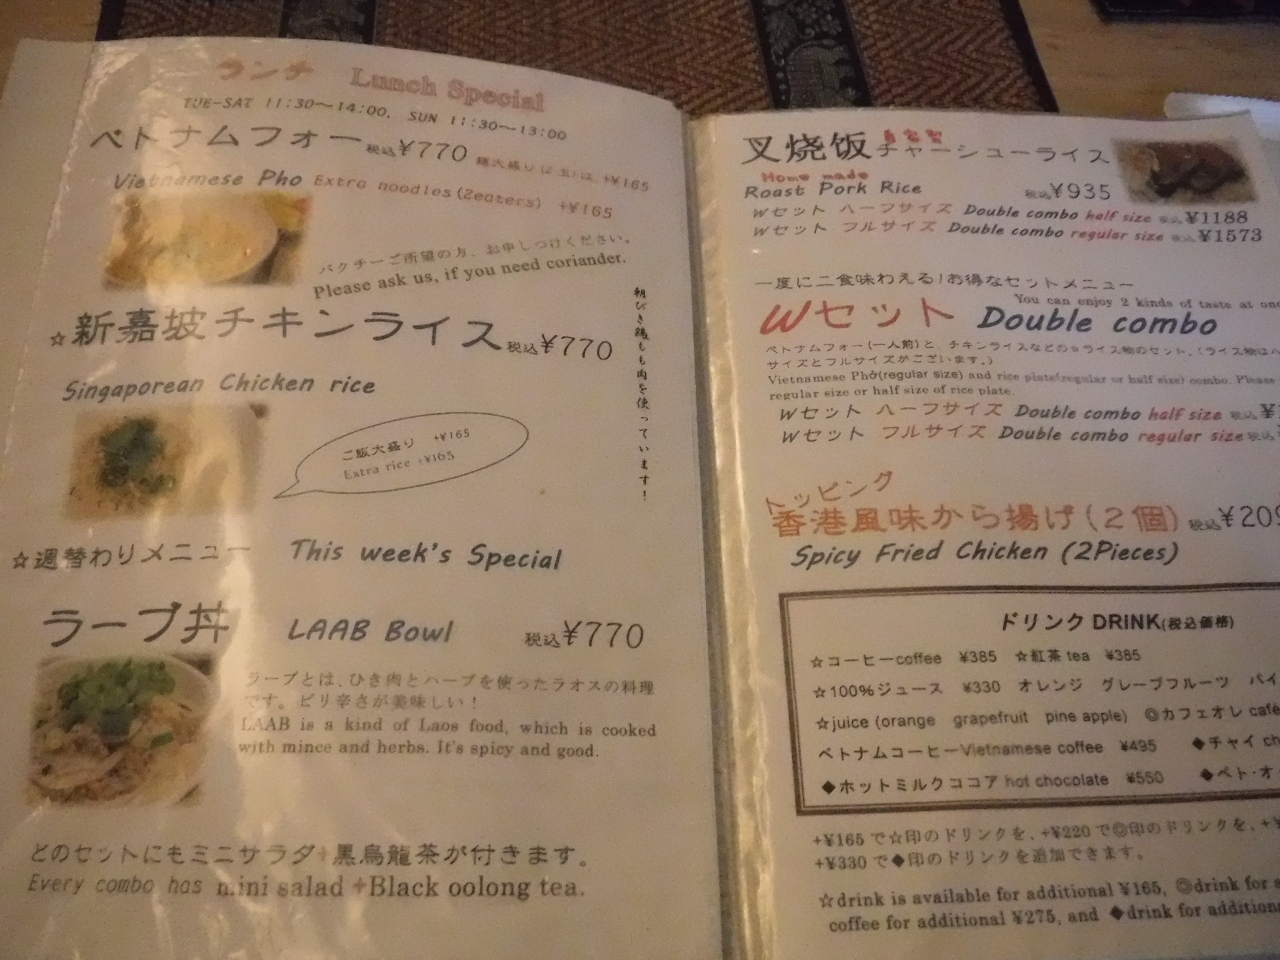 ランチ Lunch Special
TUE-SAT 11:30～14:00, SUN 11:30～13:00
ベトナムフォー税込¥770 麺大盛り(2玉)は、+¥165
Vietnamese Pho Extra noodles (2eaters) +¥165
パクチーご所望の方、お申しつけください。
Please ask us, if you need coriander.
☆新嘉坡チキンライス税込¥770
Singaporean Chicken rice
朝びき鶏もも肉を使っています!
ご飯大盛り +¥165
Extra rice +¥165
☆週替わりメニュー This week's Special
ラープ丼 LAAB Bowl 税込¥770
ラープとは、ひき肉とハーブを使ったラオスの料理
です。ピリ辛さが美味しい!
LAAB is a kind of Laos food, which is cooked
with mince and herbs. It's spicy and good.
どのセットにもミニサラダ+黒烏龍茶が付きます。
Every combo has mini salad +Black oolong tea.
自家製
叉焼饭チャーシューライス
Home made
Roast Pork Rice 税込¥935
Wセット ハーフサイズ Double combo half size 税込¥1188
Wセット フルサイズ Double combo regular size 税込¥1573
一度に二食味わえる!お得なセットメニュー
You can enjoy 2 kinds of taste at
Wセット Double combo
ベトナムフォー(一人前)と、チキンライスなどの☆ライス物のセット。(ライス物は
サイズとフルサイズがございます。)
Vietnamese Phở(regular size) and rice plate(regular or half size) combo. Please
regular size or half size of rice plate.
Wセット ハーフサイズ Double combo half size 税込¥
Wセット フルサイズ Double combo regular size 税込
トッピング
香港風味から揚げ(2個) 税込¥209
Spicy Fried Chicken (2Pieces)
ドリンク DRINK(税込価格)
☆コーヒーcoffee ¥385 ☆紅茶 tea ¥385
☆100%ジュース ¥330 オレンジ グレープフルーツ パイ
☆juice (orange grapefruit pine apple) ◎カフェオレ café
ベトナムコーヒーVietnamese coffee ¥495 ◆チャイ ch
◆ホットミルクココア hot chocolate ¥550 ◆ベト・オ
+¥165で☆印のドリンクを、+¥220で◎印のドリンクを、+¥
+¥330で◆印のドリンクを追加できます。
☆drink is available for additional ¥165, ◎drink for a
coffee for additional ¥275, and ◆drink for addition